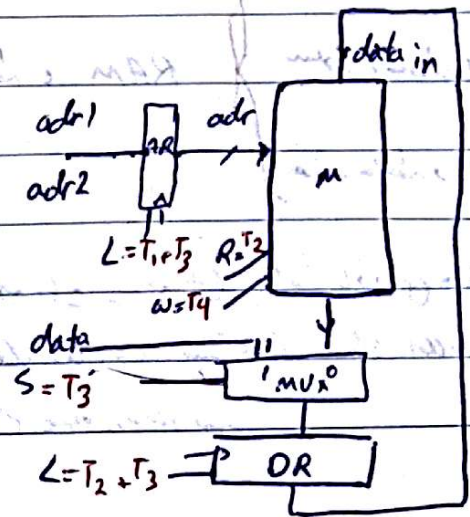 data in
adr1 adr
AR
adr2
M
L=T1+T3
R=T2
w=T4
data
S=T3
1 MUX 0
L=T2+T3
DR